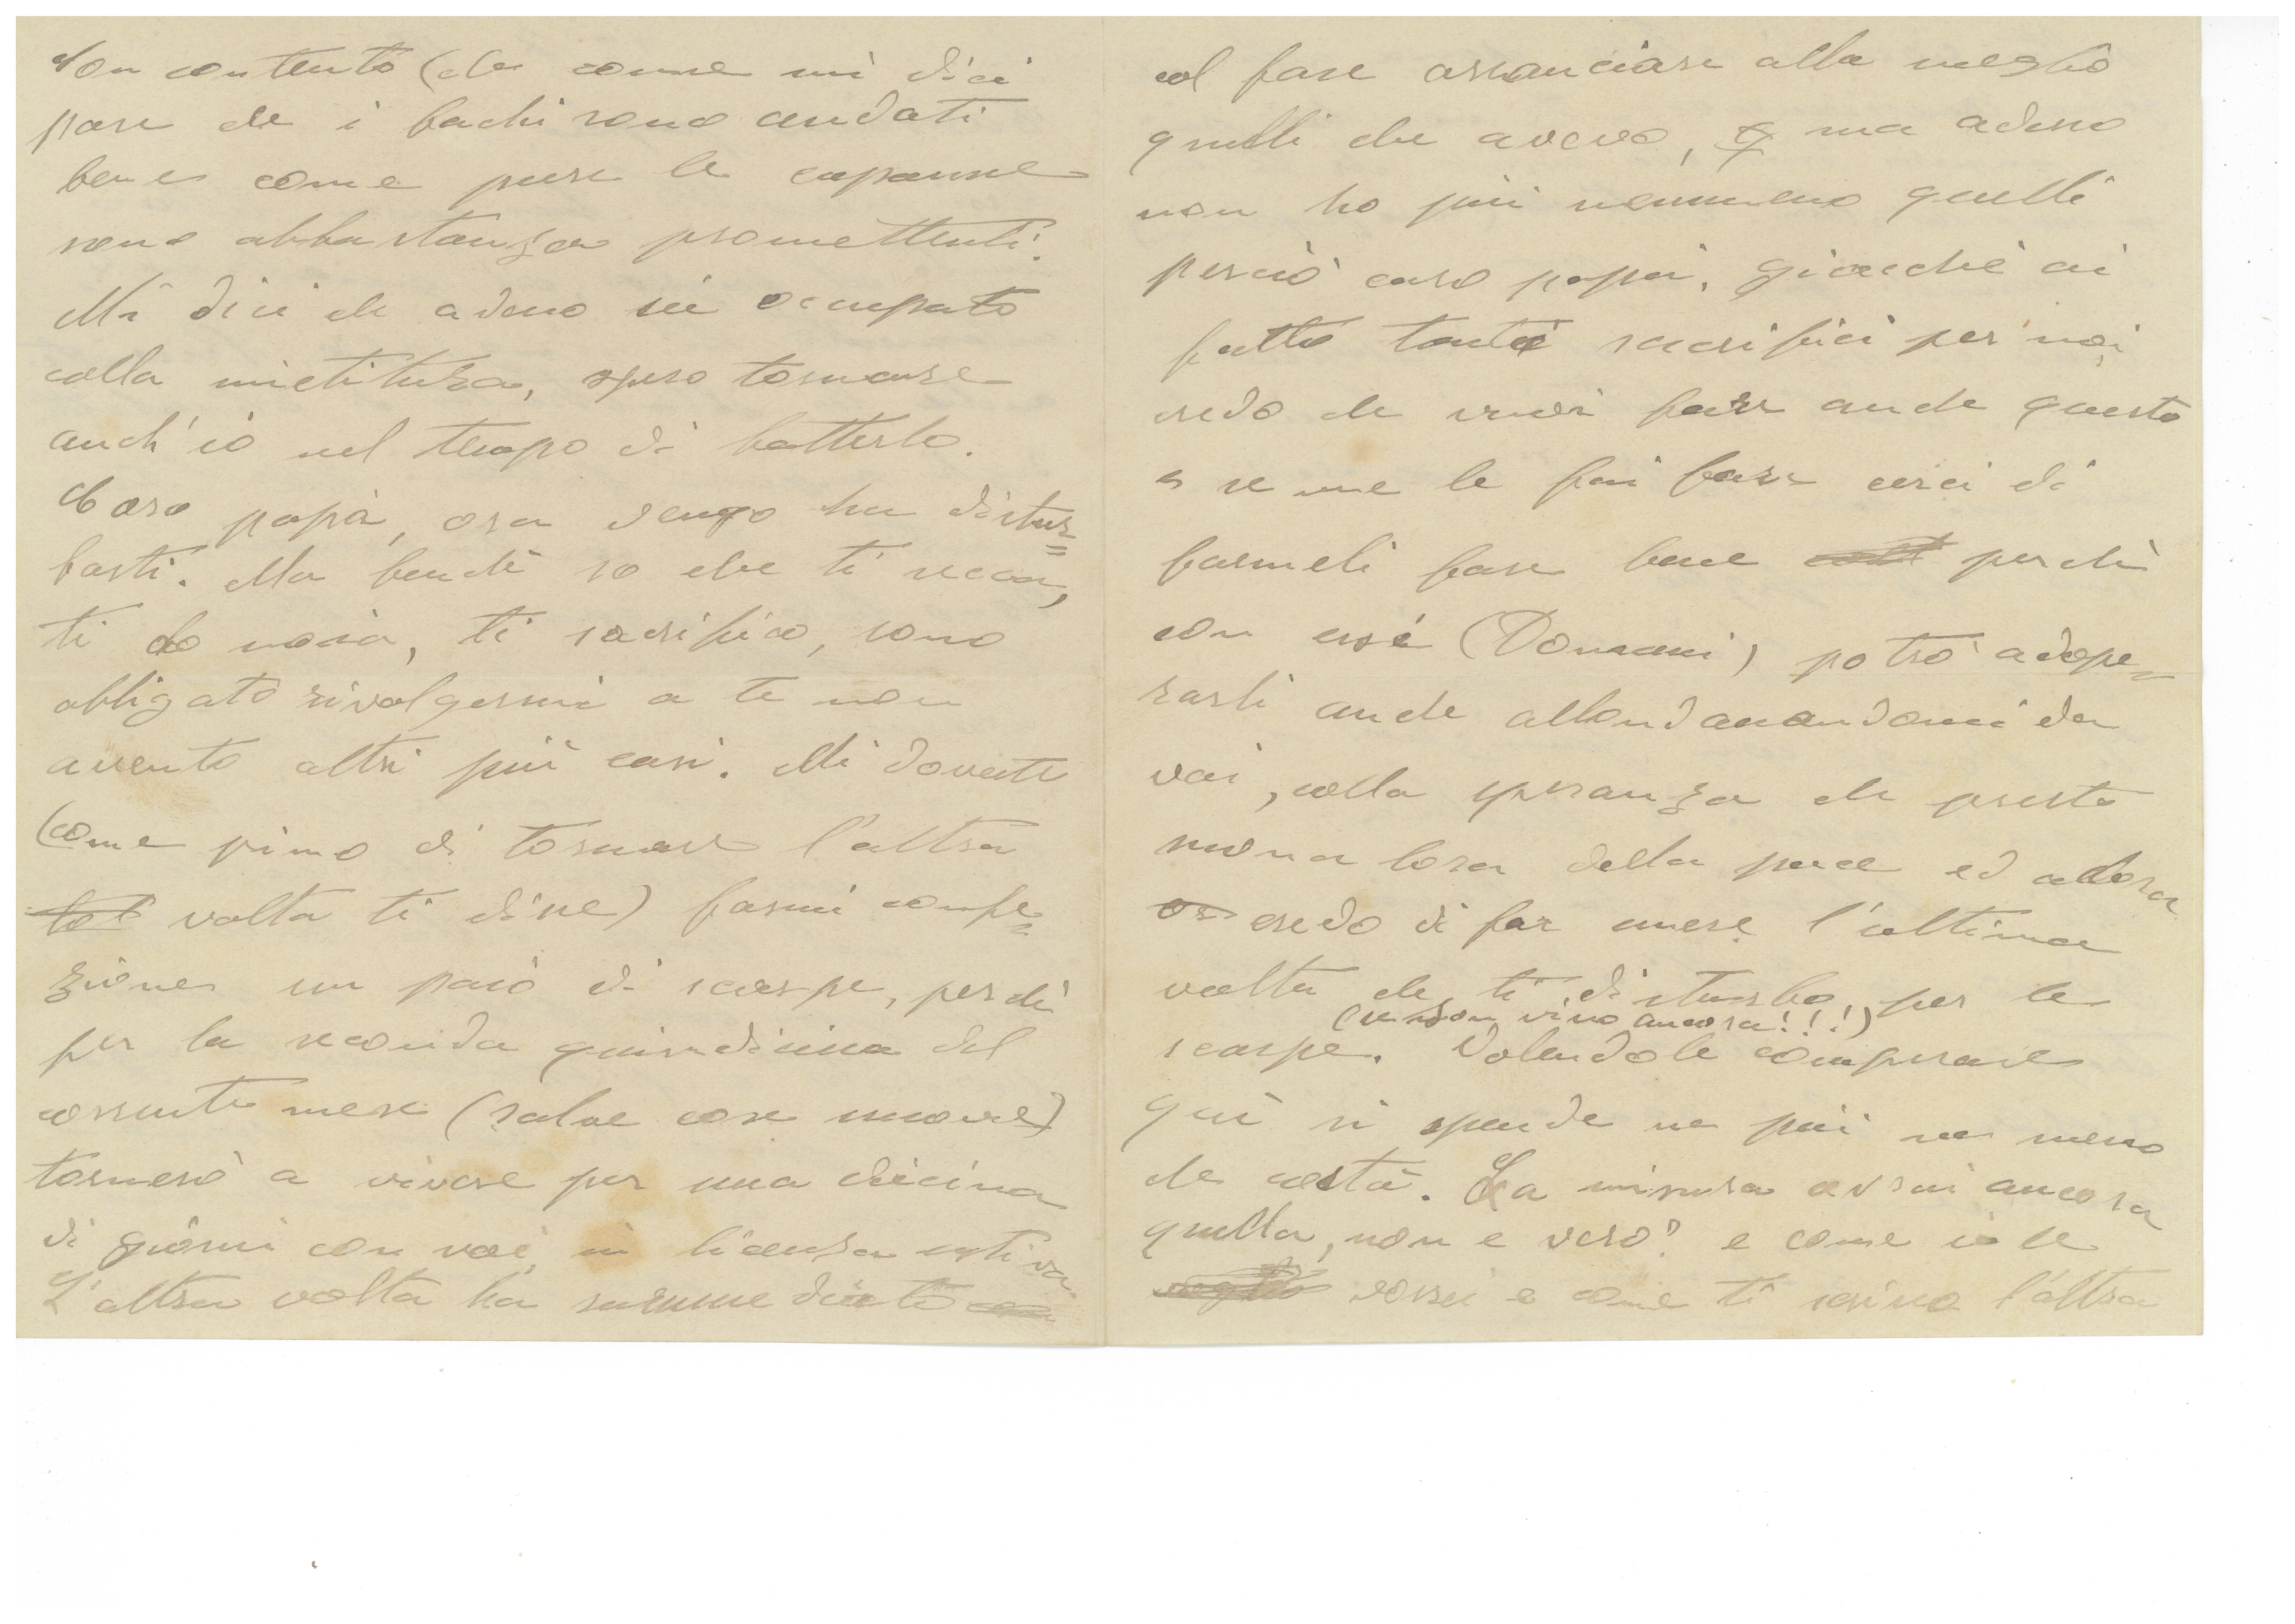 Son contento (che come mi dici
pare che i bachi sono andati
bene come pure le capanne
sono abbastanza promettenti.
Mi dici che adesso sei occupato
colla mietitura, spero tornare
anch'io nel tempo di batterlo.
Caro papà, ora vengo ha distur=
barti. Ma benchè so che ti secca,
ti do noia, ti sacrifico, sono
obbligato rivolgermi a te non
avento altri più cari. Mi dovreste
(come pimo di tornare l'altra
volta ti disse) farmi confe=
zione un paio di scarpe, perchè
per la seconda quindicina del
corrente mese (salve cose nuove)
tornerò a vivere per una diecina
di giorni con voi, in licenza estiva
L'altra volta ha
col fare arranciare alla meglio
quelli che avevo, ma adesso
non ho più nemmeno quelli
perciò caro papà, giacchè ai
fatto tanti sacrifici per noi
credo che vuoi fare anche questo
e se me le fai fare cerci di
farmeli fare bene perchè
con essi (Domani) potrò adope=
rarli anche allondanandomi da
voi, colla speranza che presto
suona lora della pace ed allora
credo di far essere l'ultima
volta che ti disturbo per le
(se son vivo ancora!!!)
scarpe. Volendole comperare
qui si spende ne più ne meno
che costà. La misura avrai ancora
quella, non è vero? e come io le
vorrei e come ti scrivo l'altra